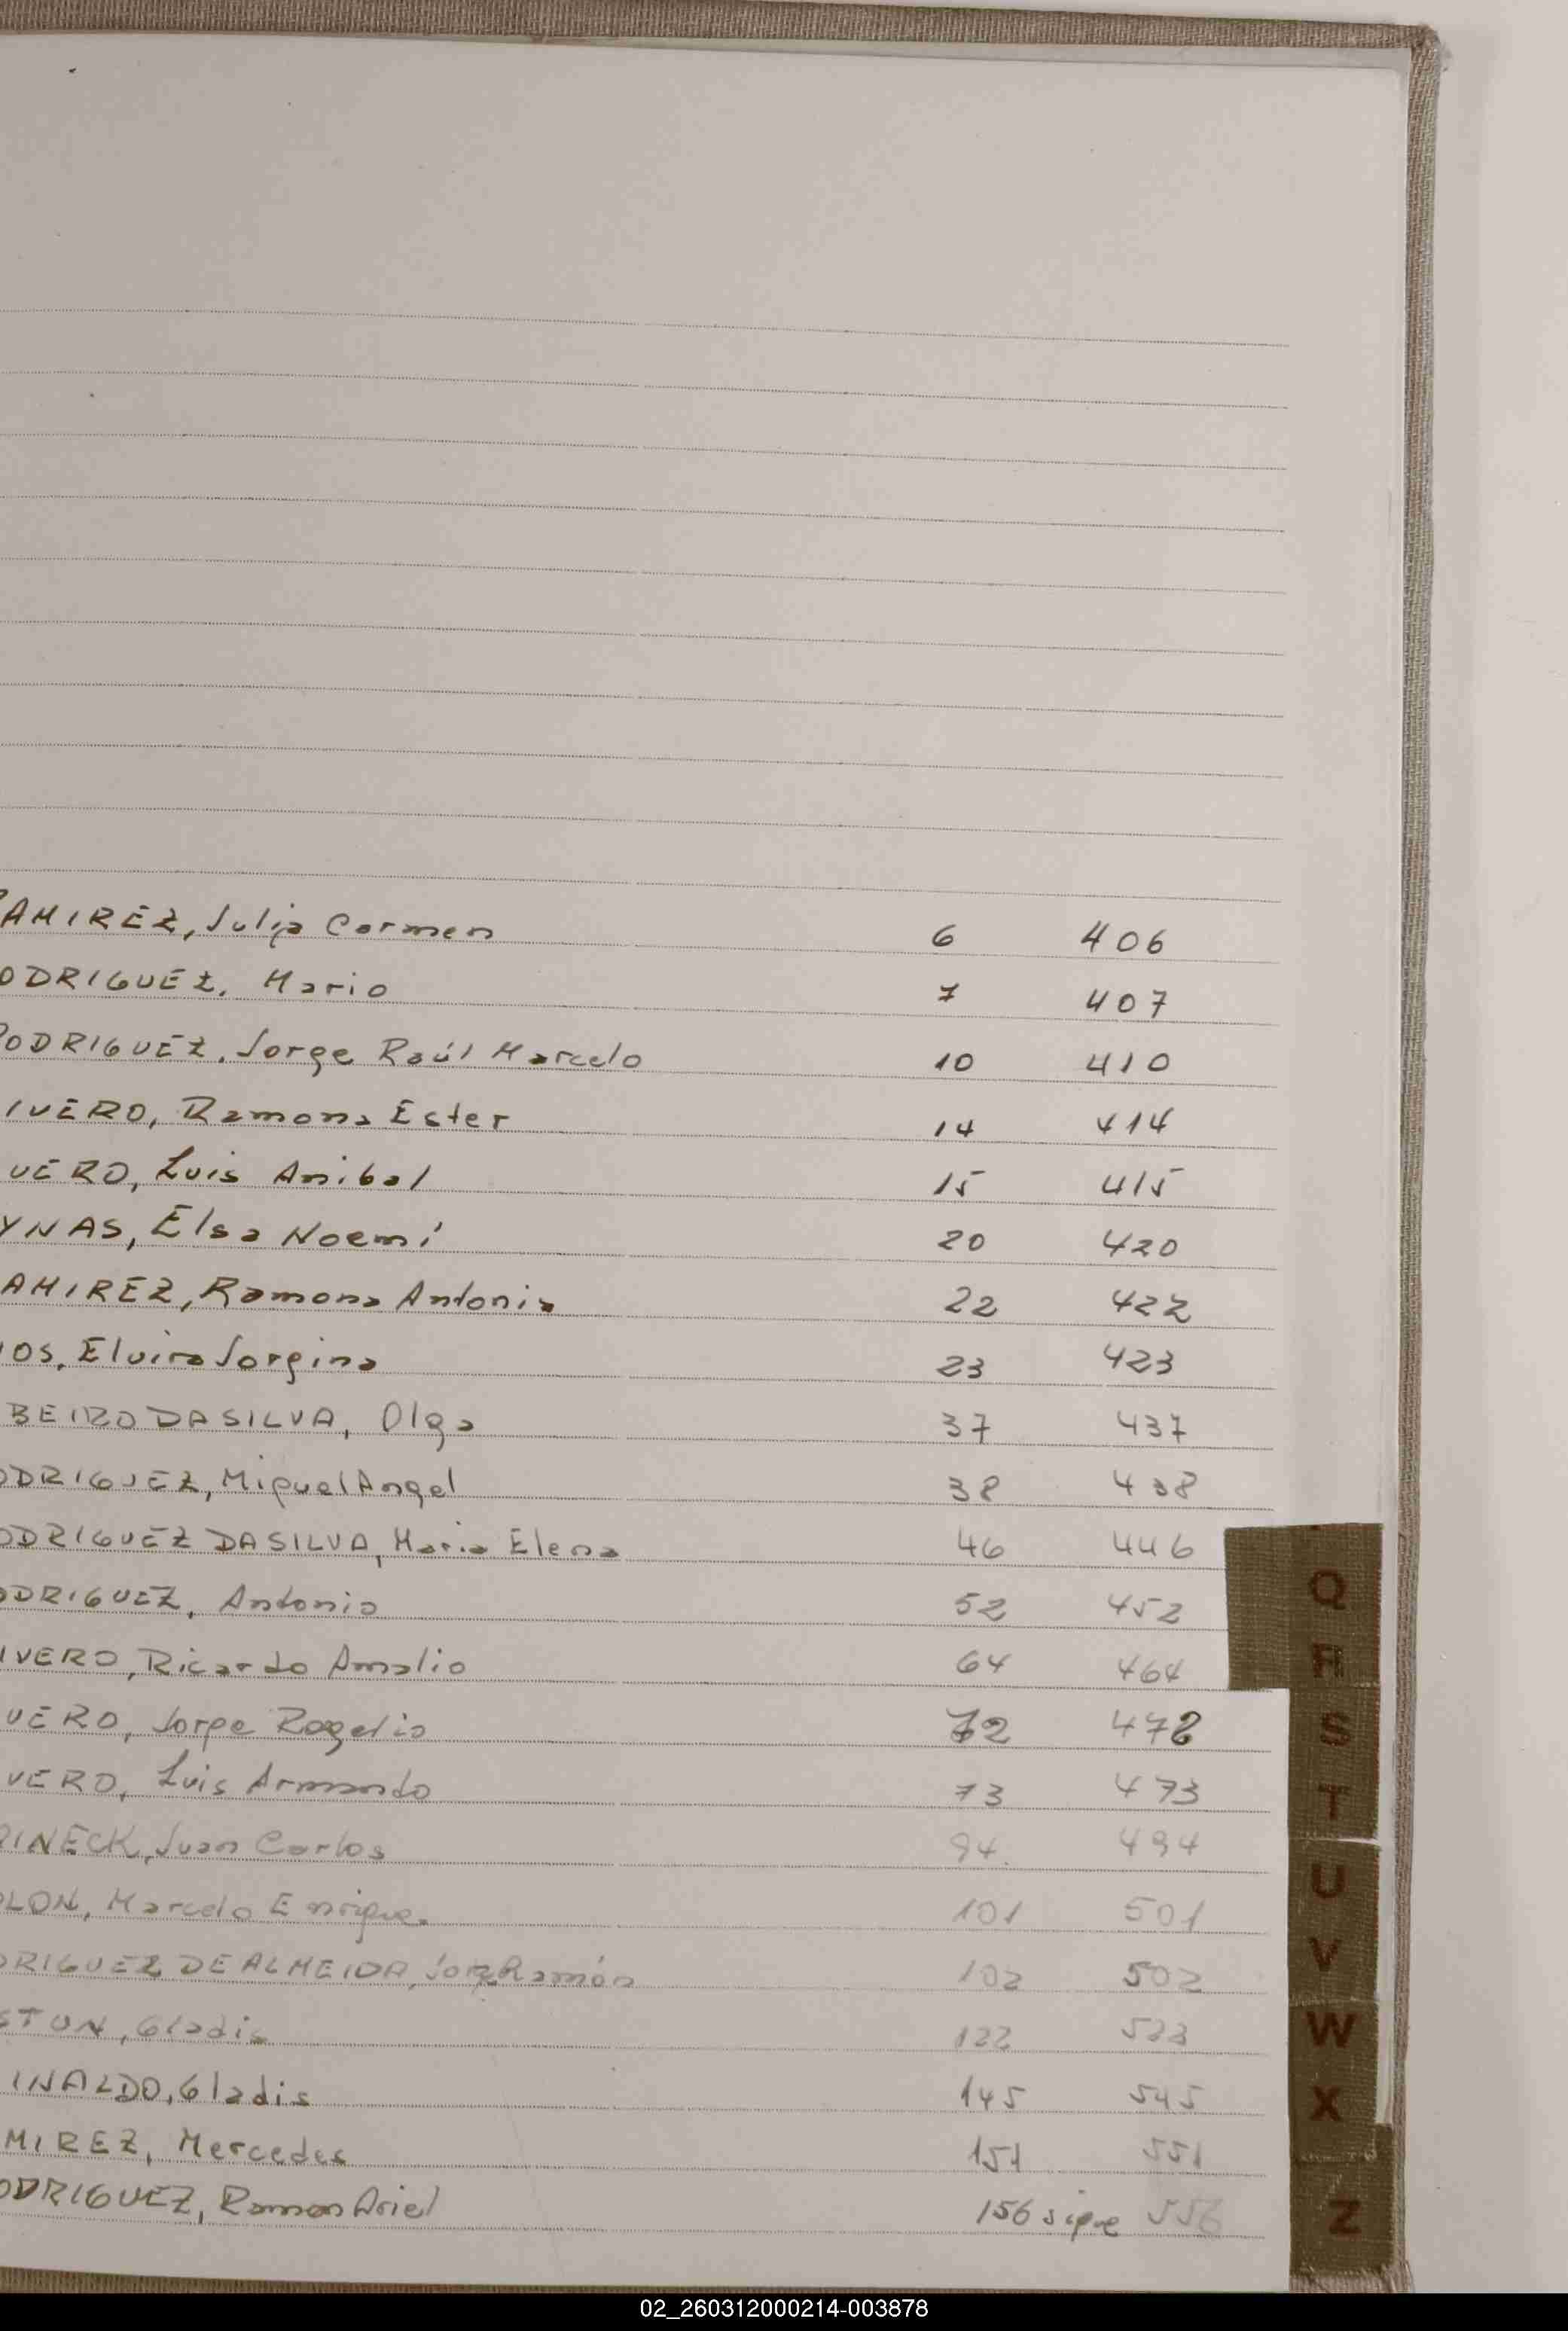 RAMIREZ, Julia Carmen 6 406
ODRIGUEZ, Mario 7 407
RODRIGUEZ, Jorge Raúl Marcelo 10 410
IVERO, Ramona Ester 14 414
VERO, Luis Anibal 15 415
YNAS, Elsa Noemí 20 420
AMIREZ, Ramona Antonia 22 422
IOS, Elvira Jorgina 23 423
BEIRO DA SILVA, Olga 37 437
ODRIGUEZ, Miguel Angel 38 438
ODRIGUEZ DA SILVA, Maria Elena 46 446
ODRIGUEZ, Antonio 52 452
IVERO, Ricardo Amalio 64 464
VERO, Jorge Rogelio 72 472
VERO, Luis Armando 73 473
RINECK, Juan Carlos 94. 494
OLON, Marcelo Enrique. 101 501
DRIGUEZ DE ALMEIDA, Jorge Ramón 102 502
STON, Gladis 122
INALDO, Gladis 145 545
MIREZ, Mercedes 151 551
ODRIGUEZ, Ramon Ariel 156 sigue 556
Q
R
S
T
U
V
W
X
Z
02_260312000214-003878